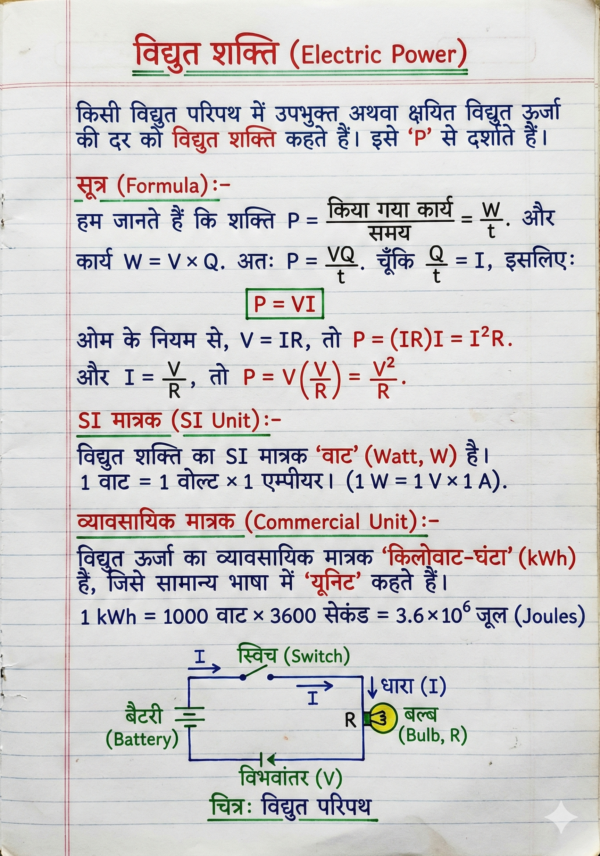 विद्युत शक्ति (Electric Power)
किसी विद्युत परिपथ में उपभुक्त अथवा क्षयित विद्युत ऊर्जा
की दर को विद्युत शक्ति कहते हैं। इसे 'P' से दर्शाते हैं।
सूत्र (Formula):-
हम जानते हैं कि शक्ति P = किया गया कार्य/समय = W/t. और
कार्य W = V × Q. अतः P = VQ/t. चूँकि Q/t = I, इसलिए:
P = VI
ओम के नियम से, V = IR, तो P = (IR)I = I²R.
और I = V/R, तो P = V(V/R) = V²/R.
SI मात्रक (SI Unit):-
विद्युत शक्ति का SI मात्रक 'वाट' (Watt, W) है।
1 वाट = 1 वोल्ट × 1 एम्पीयर। (1 W = 1 V × 1 A).
व्यावसायिक मात्रक (Commercial Unit):-
विद्युत ऊर्जा का व्यावसायिक मात्रक 'किलोवाट-घंटा' (kWh)
हैं, जिसे सामान्य भाषा में 'यूनिट' कहते हैं।
1 kWh = 1000 वाट × 3600 सेकंड = 3.6×10⁶ जूल (Joules)
I
स्विच (Switch)
I
धारा (I)
बैटरी
(Battery)
R
बल्ब
(Bulb, R)
विभवांतर (V)
चित्रः विद्युत परिपथ